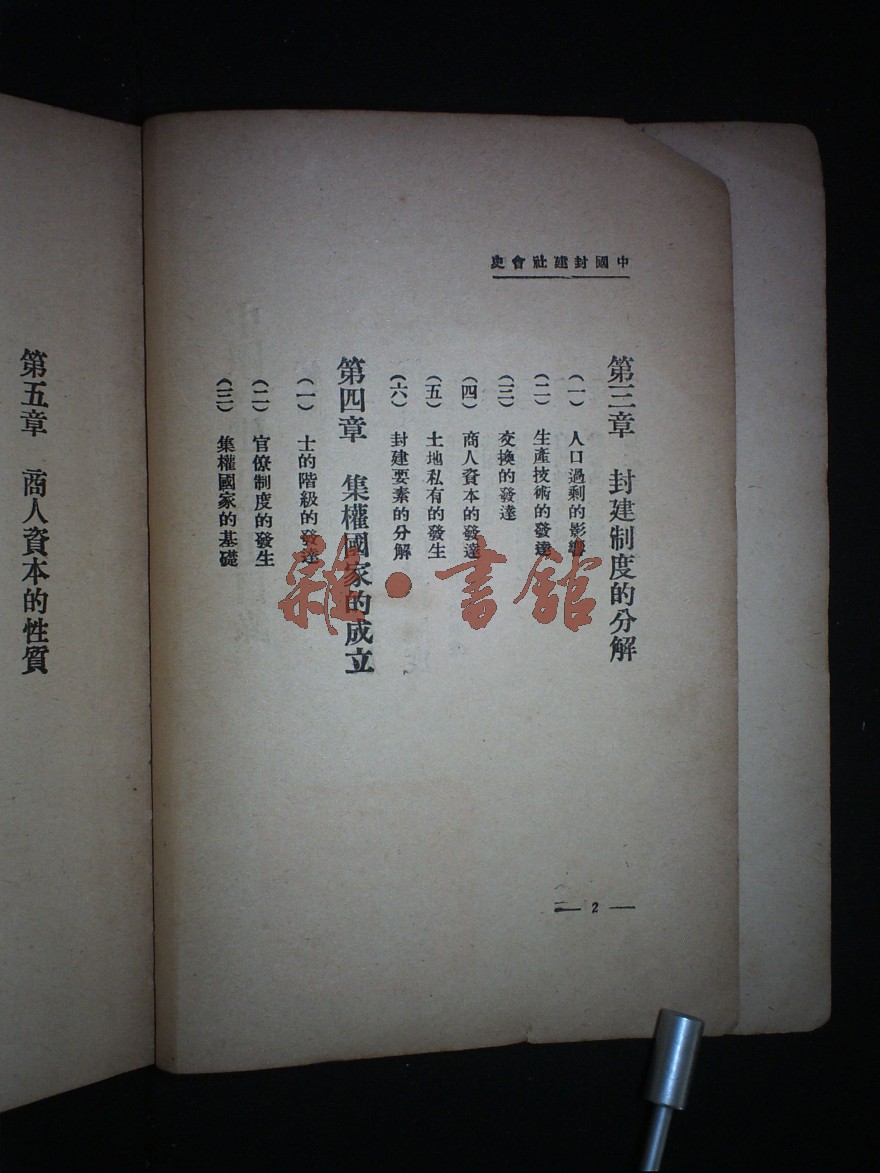 中國封建社會史
第三章 封建制度的分解
(一) 人口過剩的影響
(二) 生產技術的發達
(三) 交換的發達
(四) 商人資本的發達
(五) 土地私有的發生
(六) 封建要素的分解
第四章 集權國家的成立
(一) 士的階級的發達
(二) 官僚制度的發生
(三) 集權國家的基礎
— 2 —
第五章 商人資本的性質
雜·書館